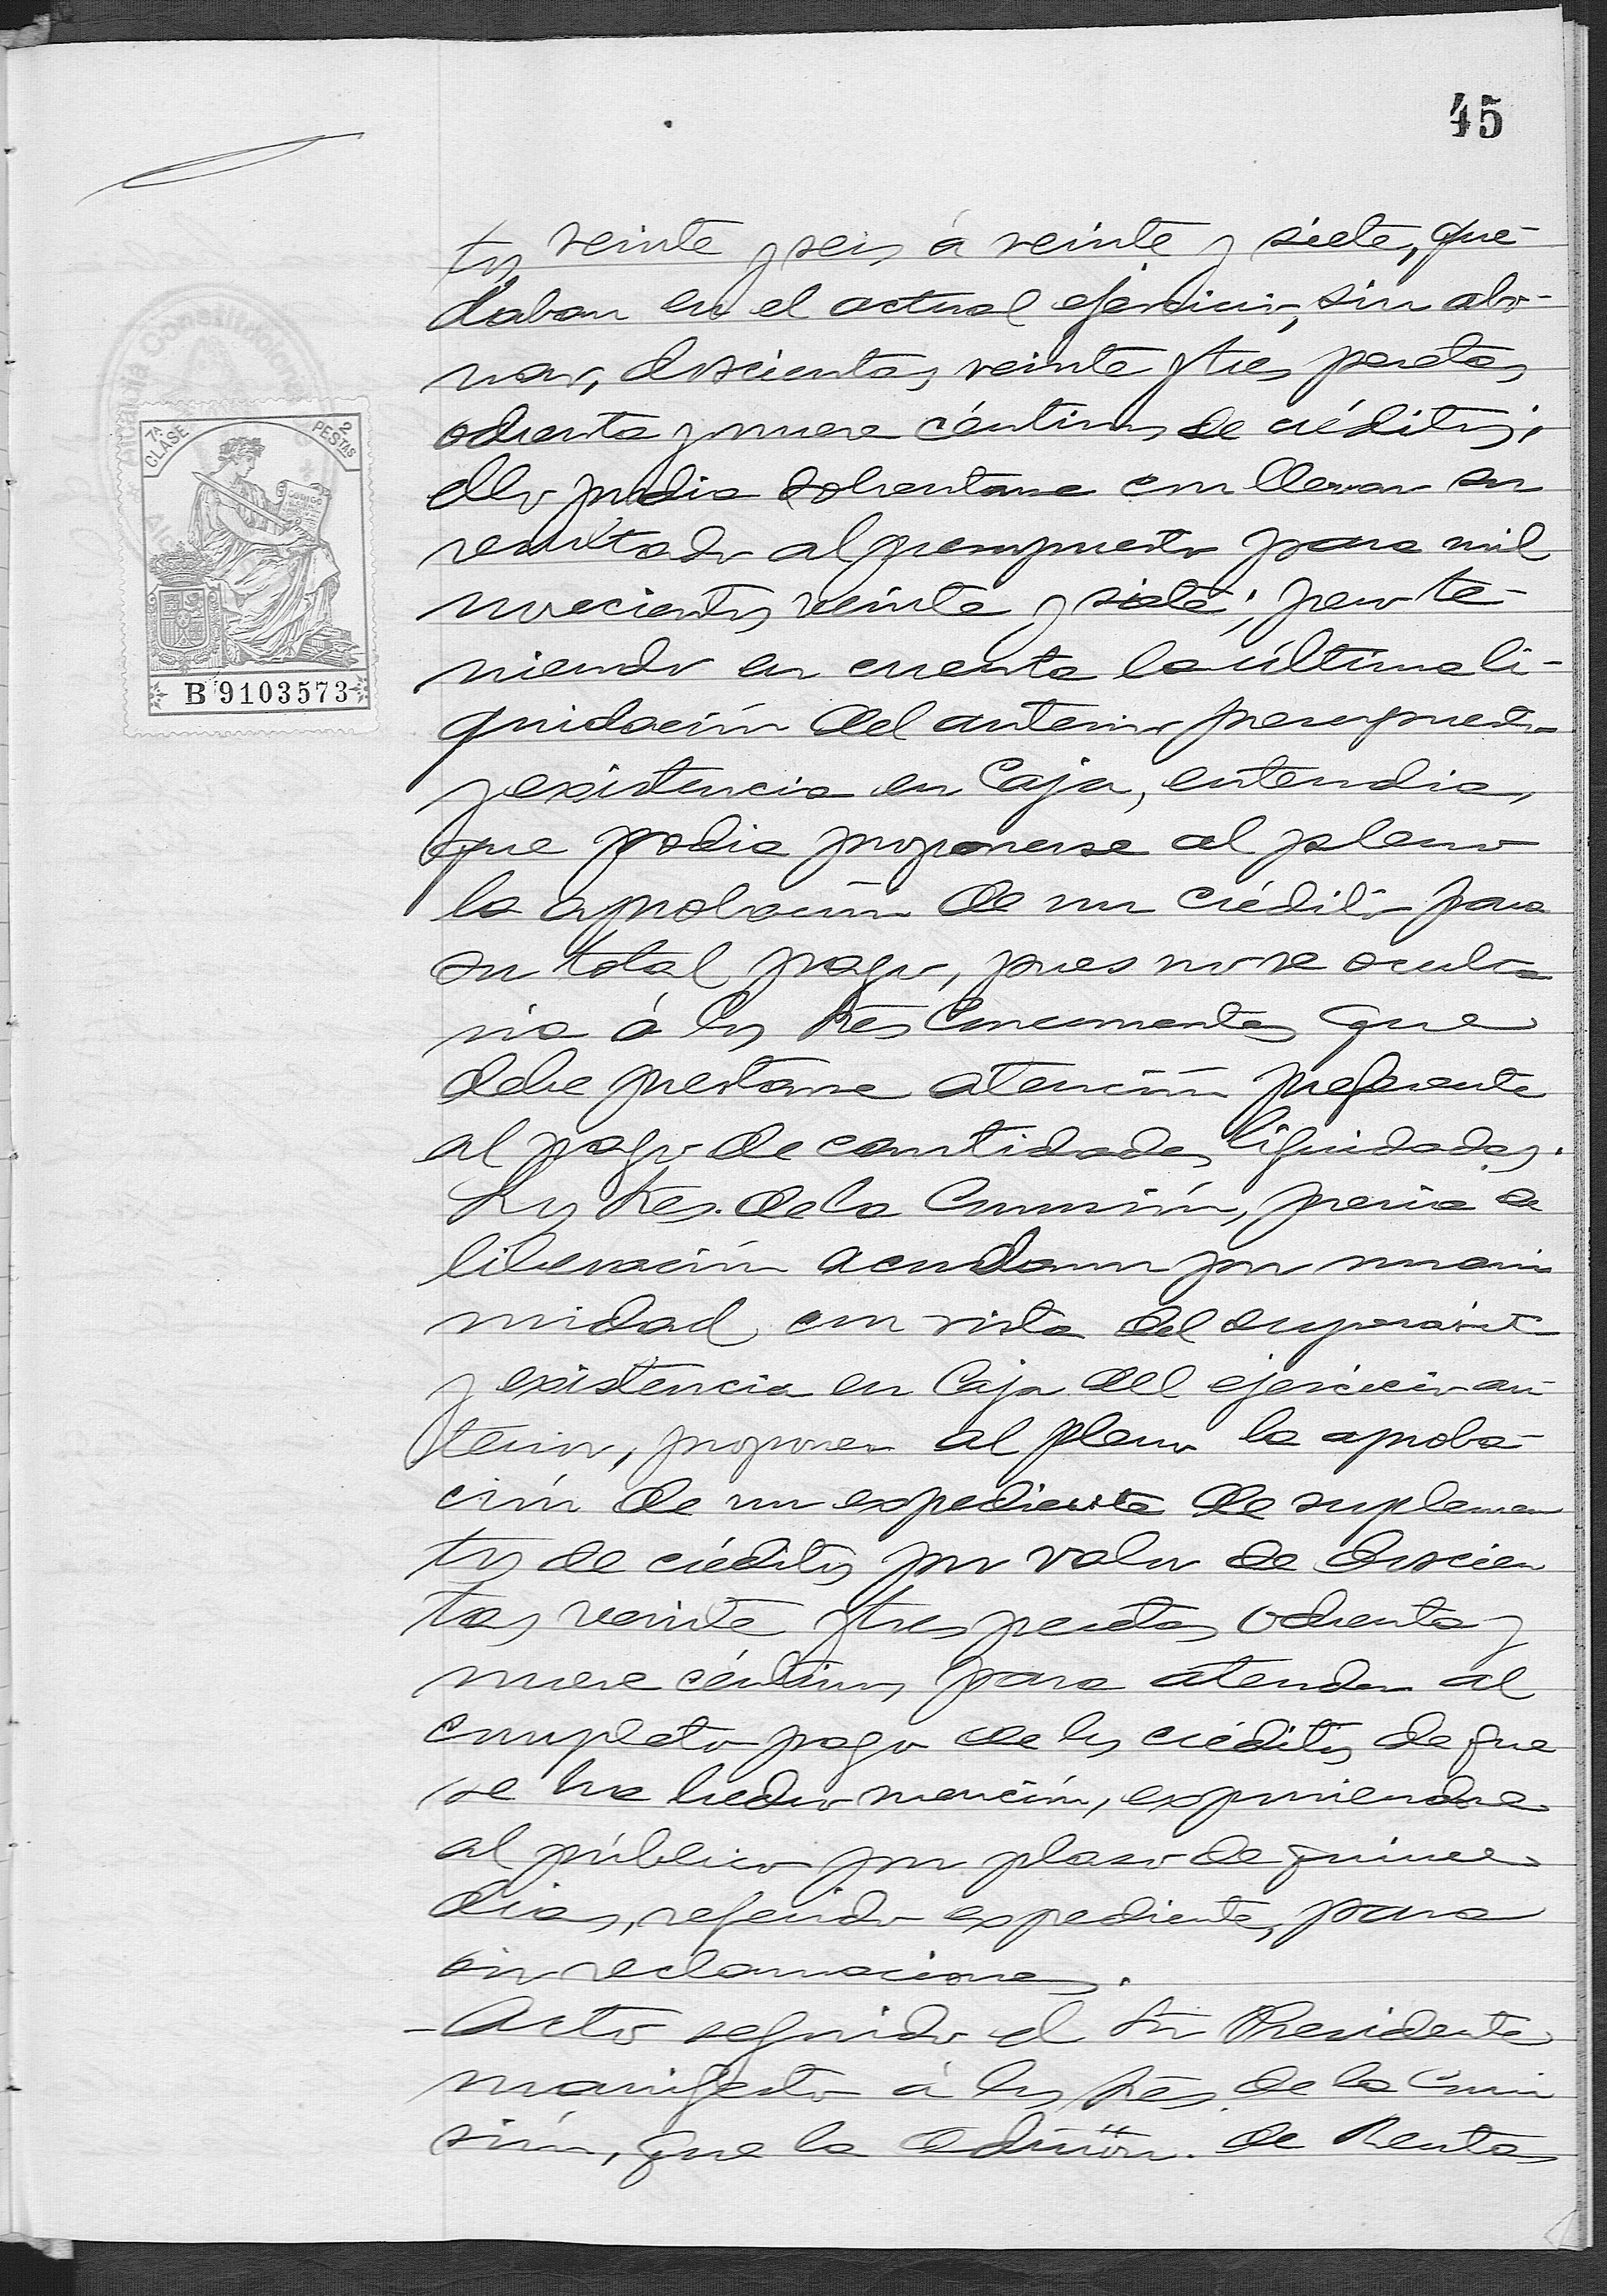 45
tos veinte y seis á veinte y siete, que-
daban en el actual ejercicio, sin abo-
nar, doscientas veinte y tres pesetas
ochenta y nueve céntimos de créditos;
ello podia solventarse con llevar su
resultado al presupuesto para mil
novecientos veinte y siete; pero te-
niendo en cuenta la última li-
quidación del anterior presupuesto
y existencia en Caja, entendia,
que podia proponerse al pleno
la aprobación de un crédito para
su total pago, pues no se oculta-
ria á los Sres Concurrentes que
debe prestarse atención preferente
al pago de cantidades liquidadas.
Los Sres. de la Comisión, previa de
liberación acordaron por unani
midad con vista del superavit
y existencia en Caja del ejercicio an-
terior, proponer al pleno la aproba-
ción de un expediente de suplemen
tos de créditos por valor de doscien
tas veinte y tres pesetas ochenta y
nueve céntimos para atender al
completo pago de los créditos de que
se ha hecho mención, exponiendose
al público por plazo de quince
dias, referido expediente, para
oir reclamaciones.
- Acto seguido el Sr Presidente
manifestó á los Sres. de la Comi
sión, que la Admon. de Rentas
Alcaldia Constitucional
7ª CLASE
2 PESTAS
B 9103573